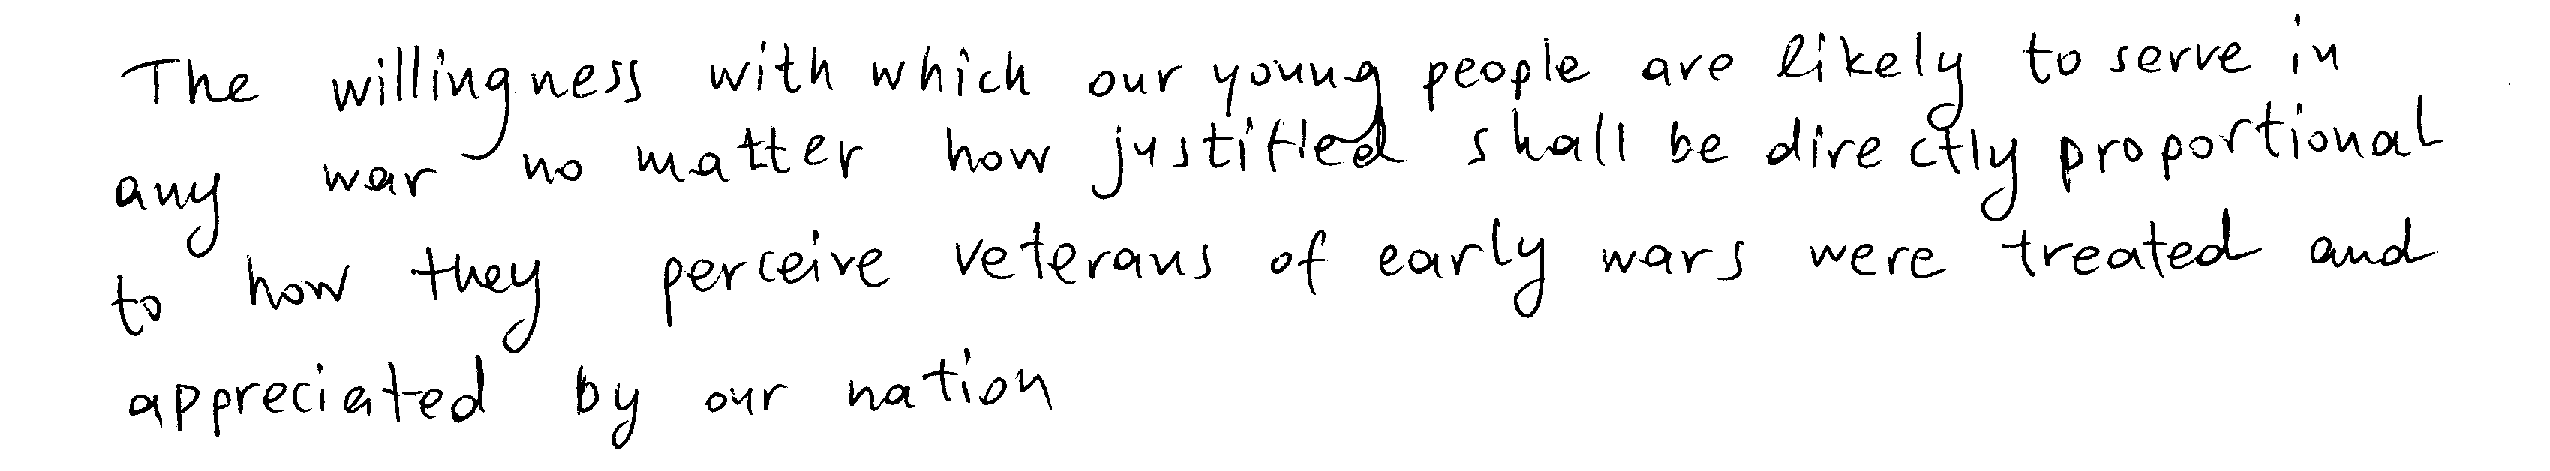 The willingness with which our young people are likely to serve in
any war no matter how justified shall be directly proportional
to how they perceive veterans of early wars were treated and
appreciated by our nation